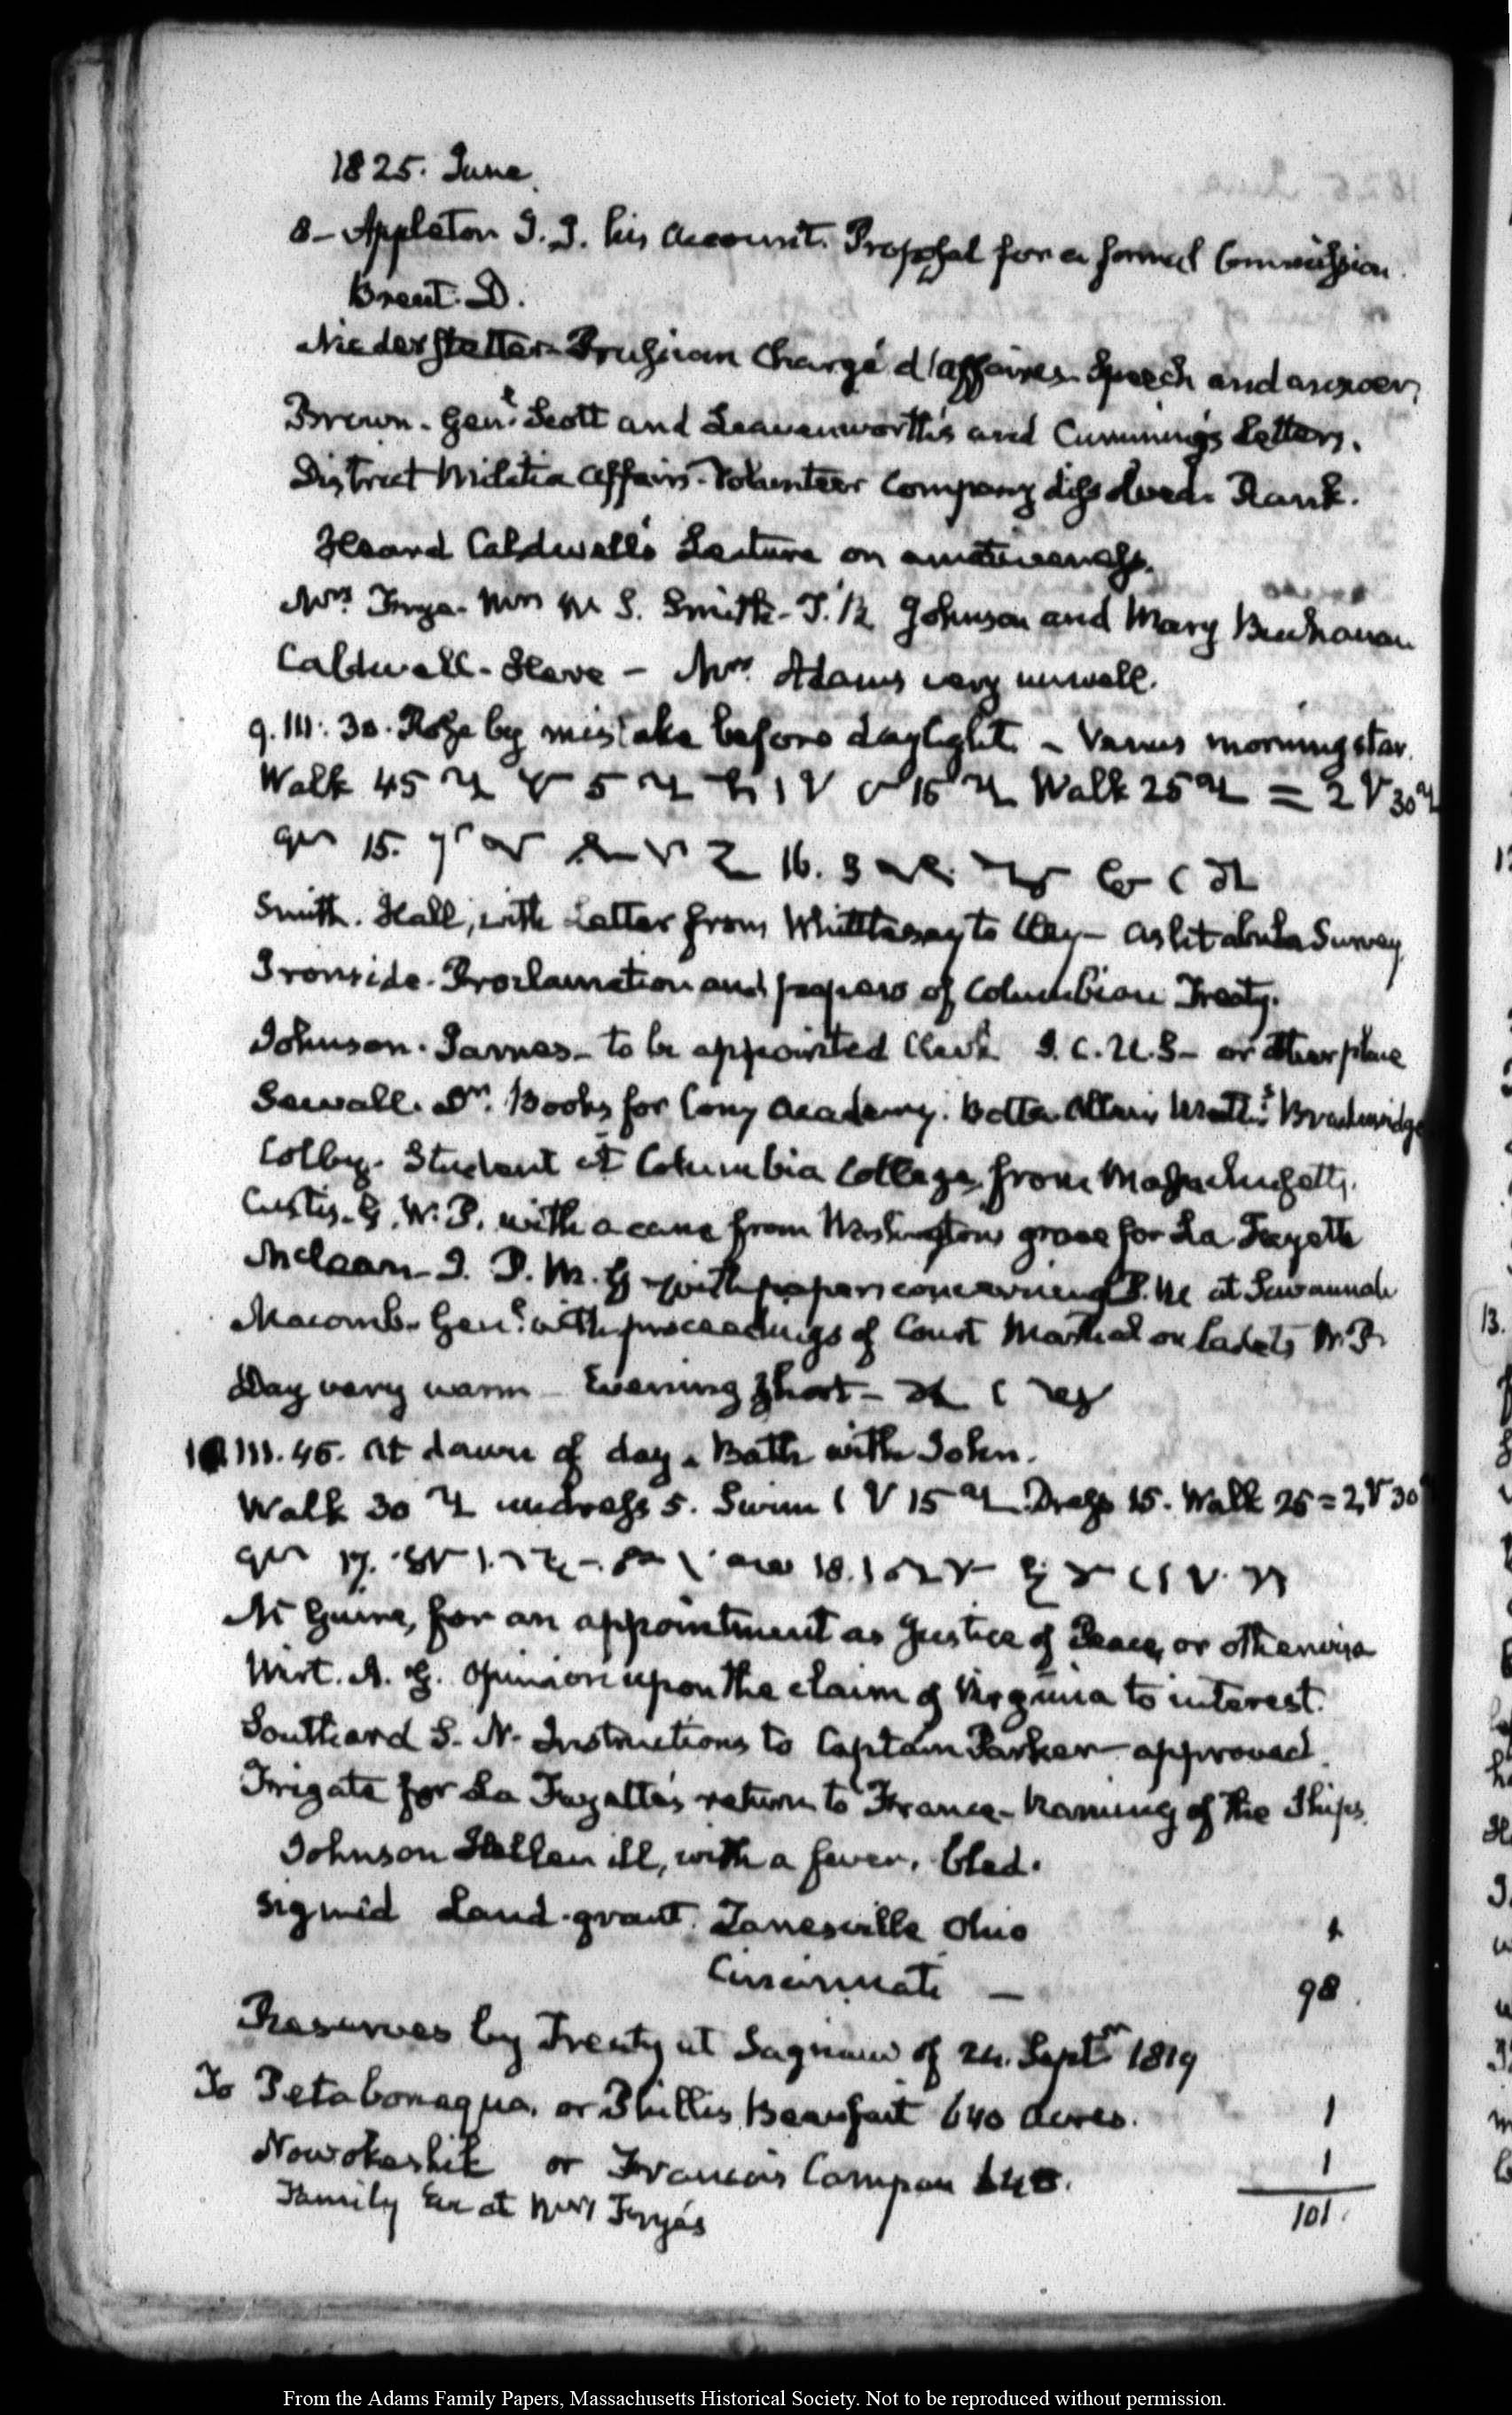 1825. June.
8 - Appleton J. J. his Account. Proposal for a formal Commission.
Brent. D.
Niederstetter Prussian Chargé d'affaires. Speech and answer.
Brown. Genl. Scott and Leavenworth's and Cumming's Letters.
District Militia affairs - Volunteer Company dissolved. Rank.
Heard Caldwell's Lecture on amativeness.
Mrs. Frye. Mrs W S. Smith - T. B. Johnson and Mary Buchanan
Caldwell. Here - Mrs. Adams very unwell.
9. III: 30. Rose by mistake before daylight. - Venus morning star.
Walk 45 5 1 15 Walk 25 = 2 30
15. 16.
Smith. Hall, with Letter from Whittlesey to Clay - Ashtabula Survey
Ironside. Proclamation and papers of Columbian Treaty.
Johnson. James - to be appointed Clerk S. C. U. S - or other place
Sewall. Dr. Books for Cony Academy. Botta Allen's Breckenridge
Colby. Student at Columbia College, from Massachusetts.
Custis. G. W. P. with a cane from Washington's grave for La Fayette
McLean - J. P. M. G - with papers concerning P. M at Savannah
Macomb. Genl. with proceedings of Court Martial on Cadets W. P.
Day very warm - Evening short -
10 III. 45. At dawn of day. Bath with John.
Walk 30 undress 5. Swim 1 15 Dress 15. Walk 25 = 2 30
17. 18.
McGuire, for an appointment as Justice of Peace, or otherwise
Wirt. A. G. Opinion upon the claim of Virginia to interest.
Southard S. N. Instructions to Captain Parker - approved.
Frigate for La Fayette's return to France - Naming of the Ships.
Johnson Hellen ill, with a fever, bled.
Signed Land-grant. Zanesville Ohio 1
Cincinnati - 98.
Reserves by Treaty at Saginaw of 24. Septr. 1819
To Petabonaqua, or Phillis Beaufait 640 Acres. 1
Nowokeshik or Francois Campau 640. 1
Family Eve at Mrs Frye's 101.